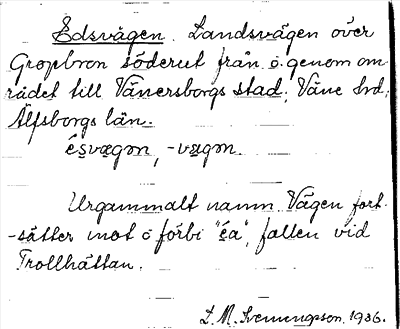 Edsvägen. Landsvägen över
Gropbron söderut från ö. genom om-
rådet till Vänersborgs stad; Väne hd;
Älfsborgs län.
ésvægən, -vægən.
Urgammalt namn. Vägen fort-
-sätter mot ö förbi "éa", fallen vid
Trollhättan.
L. M. Svenungsson 1936.